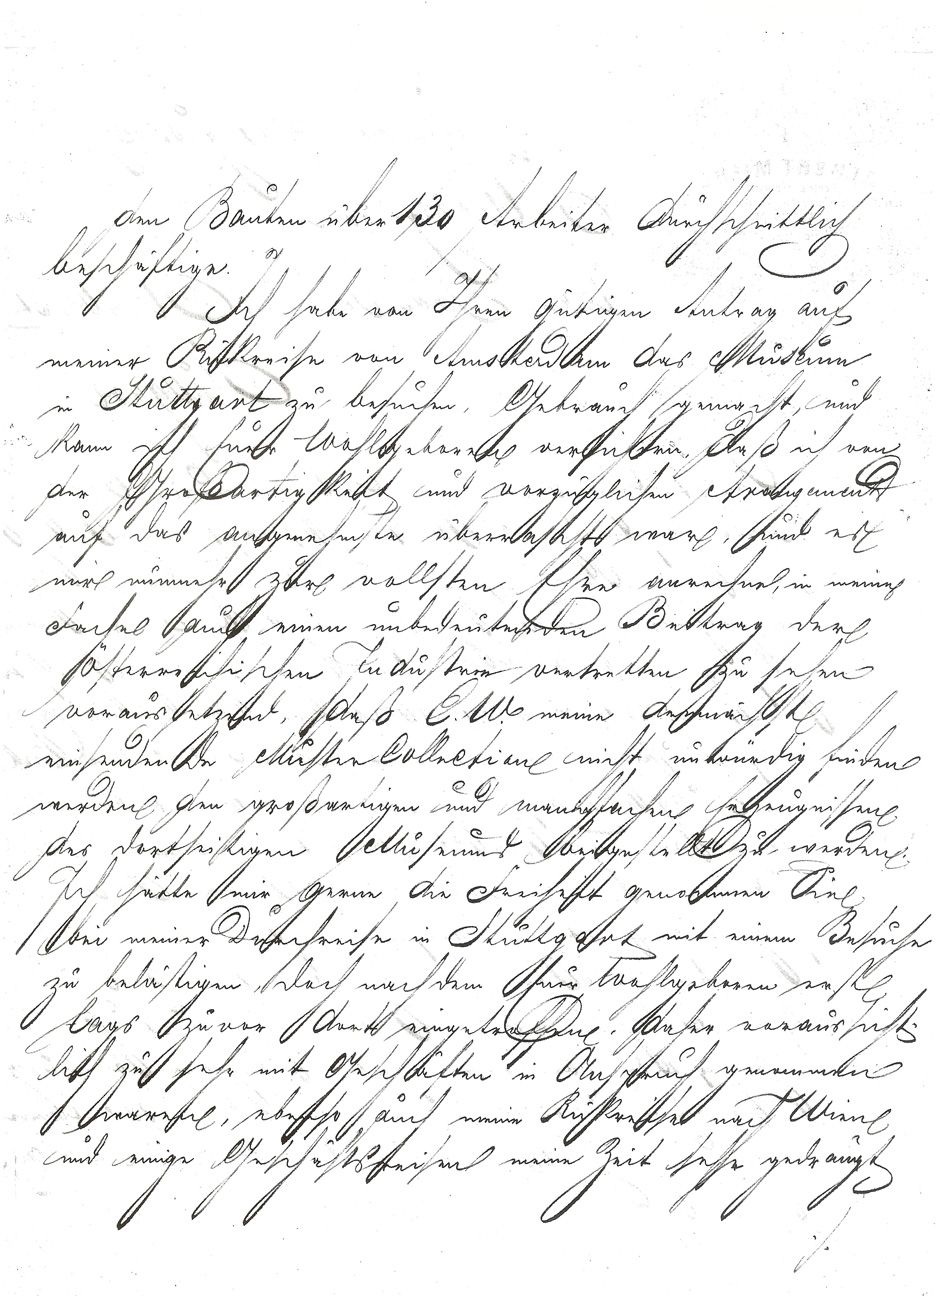 den Bauten über 130 Arbeiter durchschnittlich
beschäftige.
Ich habe von Ihren gütigen Antrag auf
meiner Rükreise von Amsterdam das Museum
in Stuttgart zu besuchen, Gebrauch gemacht, und
kann ich Euer Wohlgeboren versichern, daß ich von
der Großartigkeit und vorzüglichen Arangement
auf das angenehmste überrascht war, und es
mir nunmehr zur vollsten Ehre anrechne, in meinem
Fache auch einen unbedeutenden Beitrag der
österreichischen Industrie vertretten zu sehen
voraussetzend, daß E.W. meine demnächst
einsendende Muster Collection nicht unwürdig finden
werden, den großartigen und mannigfachen Erzeugnissen
des dortseitigen Museums beigestellt zu werden.
Ich hätte mir gerne die Freiheit genommen Sie
bei meiner Durchreise in Stuttgart mit einem Besuche
zu belästigen, doch nachdem Euer Wohlgeboren erst
Tags zuvor dort eingetroffen, daher voraussicht-
lich zu sehr mit Geschäften in Anspruch genommen
waren, ebenso auch meine Rükreise nach Wien
und einige Geschäftsreisen meine Zeit sehr gedrängt
./.